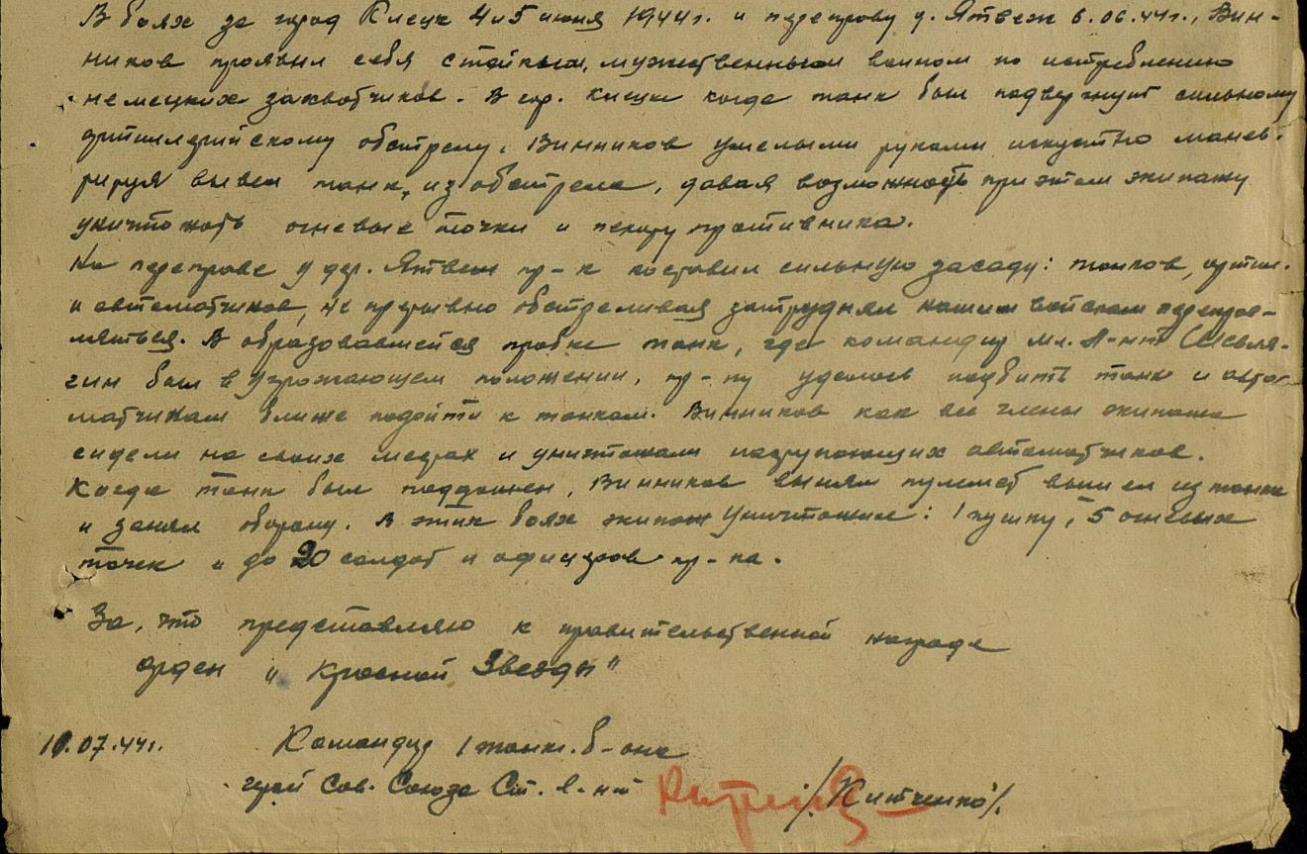 В боях за город Клецк 4 и 5 июня 1944г. и переправу д. Ятвеж 6.06.44г., Вин-
ников проявил себя стойким, мужественным воином по истреблению
немецких захватчиков. В гор. Клецк когда танк был подвергнут сильному
артиллерийскому обстрелу, Винников умелыми руками искустно манев-
рируя вывел танк, из обстрела, давая возможность при этом экипажу
уничтожать огневые точки и пехоту противника.
На переправе у дер. Ятвеж пр-к поставил сильную засаду: танков, артил.
и автоматчиков, не прерывно обстреливая затруднял нашим войскам переправ-
ляться. В образовавшейся пробке танк, где командир мл. л-нт
гин был в угрожающем положении, пр-ку удалось подбить танк и авто-
матчикам ближе подойти к танкам. Винников как все члены экипажа
сидели на своих местах и уничтожали наступающих автоматчиков.
Когда танк был подожжен, Винников вынял пулемет вышел из танка
и занял оборону. В этих боях экипаж уничтожил: 1 пушку, 5 огневых
точек и до 20 солдат и офицеров пр-ка.
За, что представляю к правительственной награде
орден "Красной Звезды"
10.07.44г. Командир 1 танк. б-она
герой Сов. Союза Ст. л-нт /Китченко/.